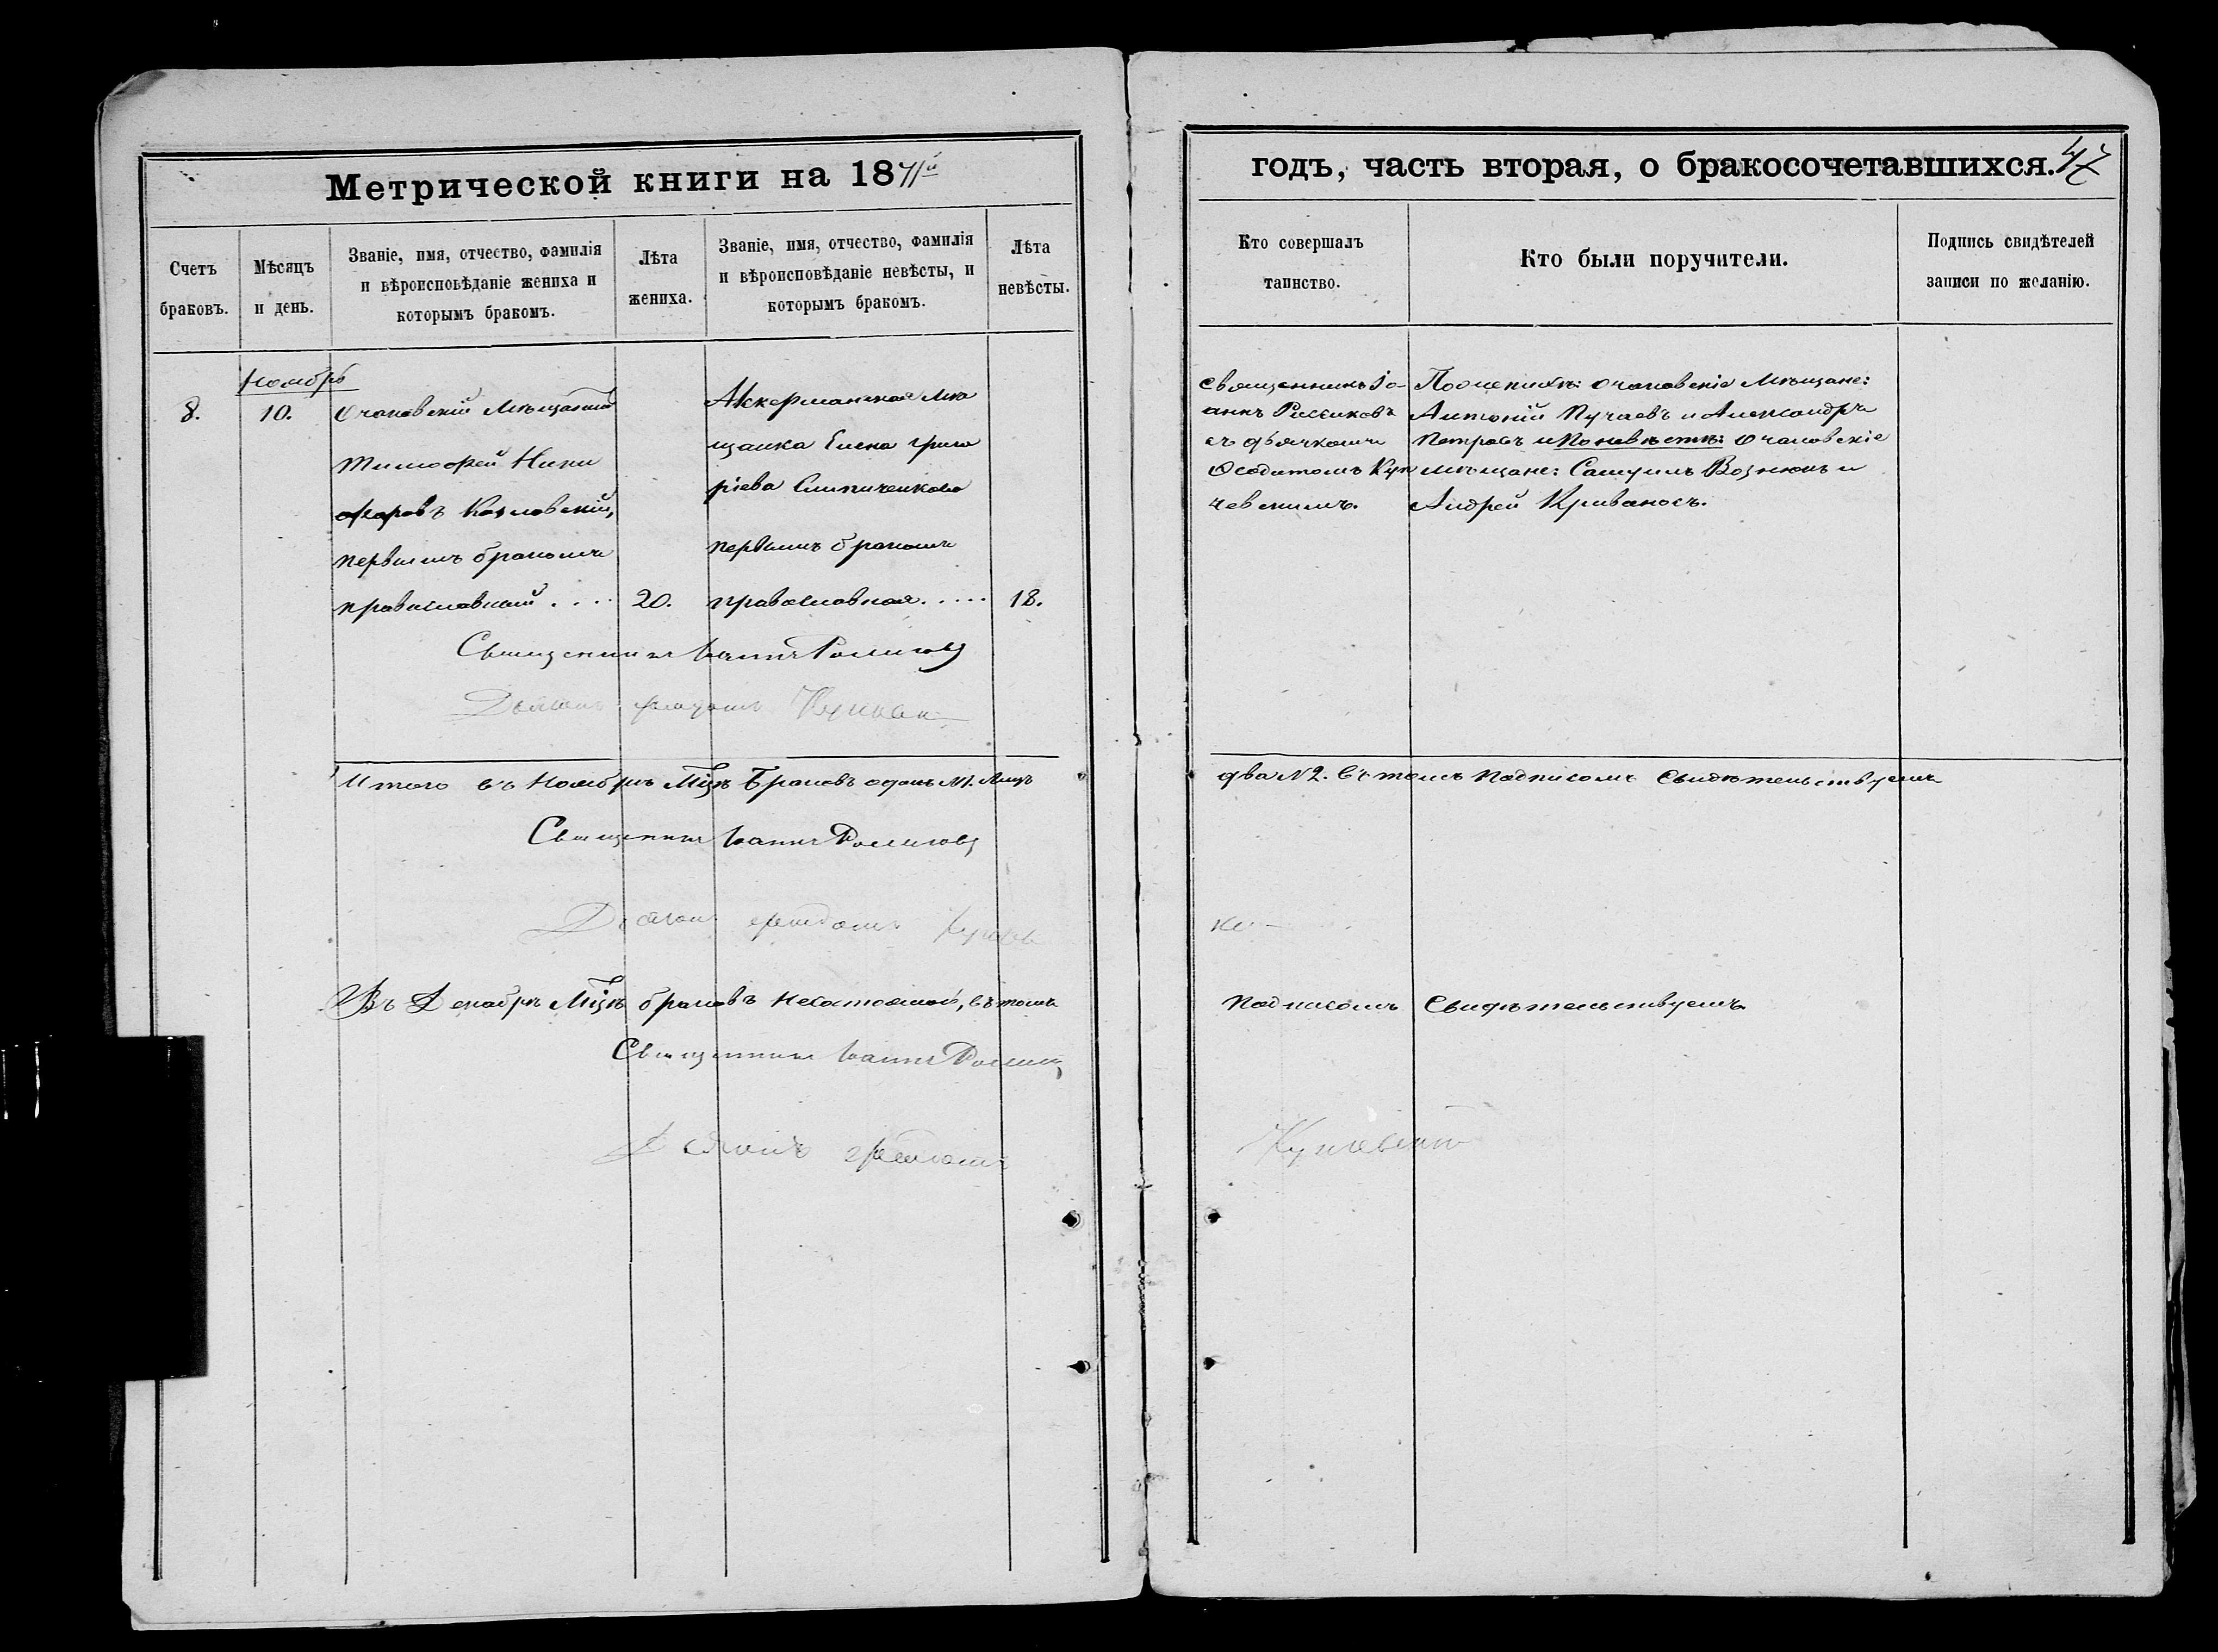 Метрической книги на 1871й
годъ, часть вторая, о бракосочетавшихся.
47
Счетъ браковъ.
Мѣсяцъ и день.
Званіе, имя, отчество, фамилія
и вѣроисповѣданіе жениха и
которымъ бракомъ.
Лѣта
жениха.
Званіе, имя, отчество, фамилія
и вѣроисповѣданіе невѣсты, и
которымъ бракомъ.
Лѣта
невѣсты.
Кто совершалъ
таинство.
Кто были поручители.
Подпись свидѣтелей
записи по желанію.
Ноябрь
8.
10.
Очаковскій мѣщанинъ
Тимофей Ники
форовъ Козловскій,
первымъ бракомъ
православный . . . .
20.
Аккерманская мѣ
щанка Елена Григо
ріева Слипченкова
первымъ бракомъ
православная . . . . .
18.
Священникъ Іо-
аннъ
съ дьячкомъ
Феодотомъ Кун
чевскимъ.
По женихѣ: Очаковскіе мѣщане:
Антоній Пугаевъ и Александръ
Петровъ и По невѣстѣ: Очаковскіе
мѣщане: Самуилъ Вознюкъ и
Андрей Кривоносъ.
Священникъ Іоаннъ
Итого въ Ноябрѣ Мцѣ Браковъ одинъ №1. Лицъ
два №2. Въ томъ подписомъ свидѣтельствуемъ
Священникъ Іоаннъ
Въ Декабрѣ Мцѣ браковъ несостоялось, въ томъ
подписомъ свидѣтельствуемъ
Священникъ Іоаннъ